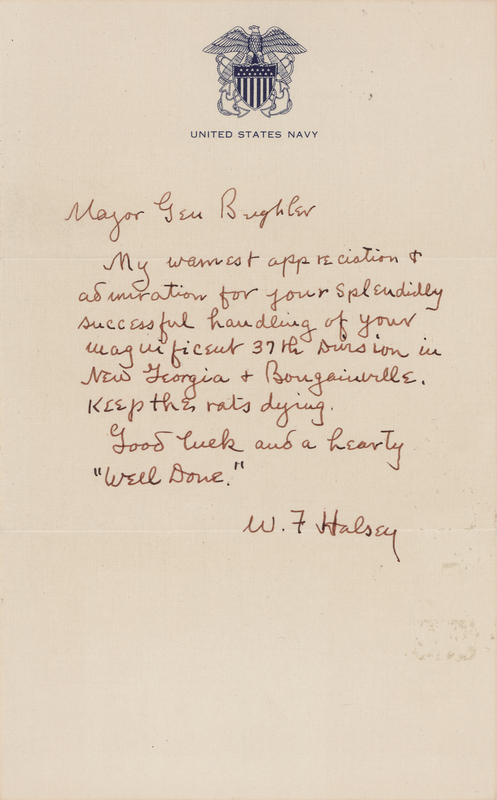 UNITED STATES NAVY
Major Gen Beighler
My warmest appreciation &
admiration for your splendidly
successful handling of your
magnificent 37th Division in
New Georgia & Bougainville.
Keep the rats dying.
Good luck and a hearty
"Well Done."
W. F Halsey